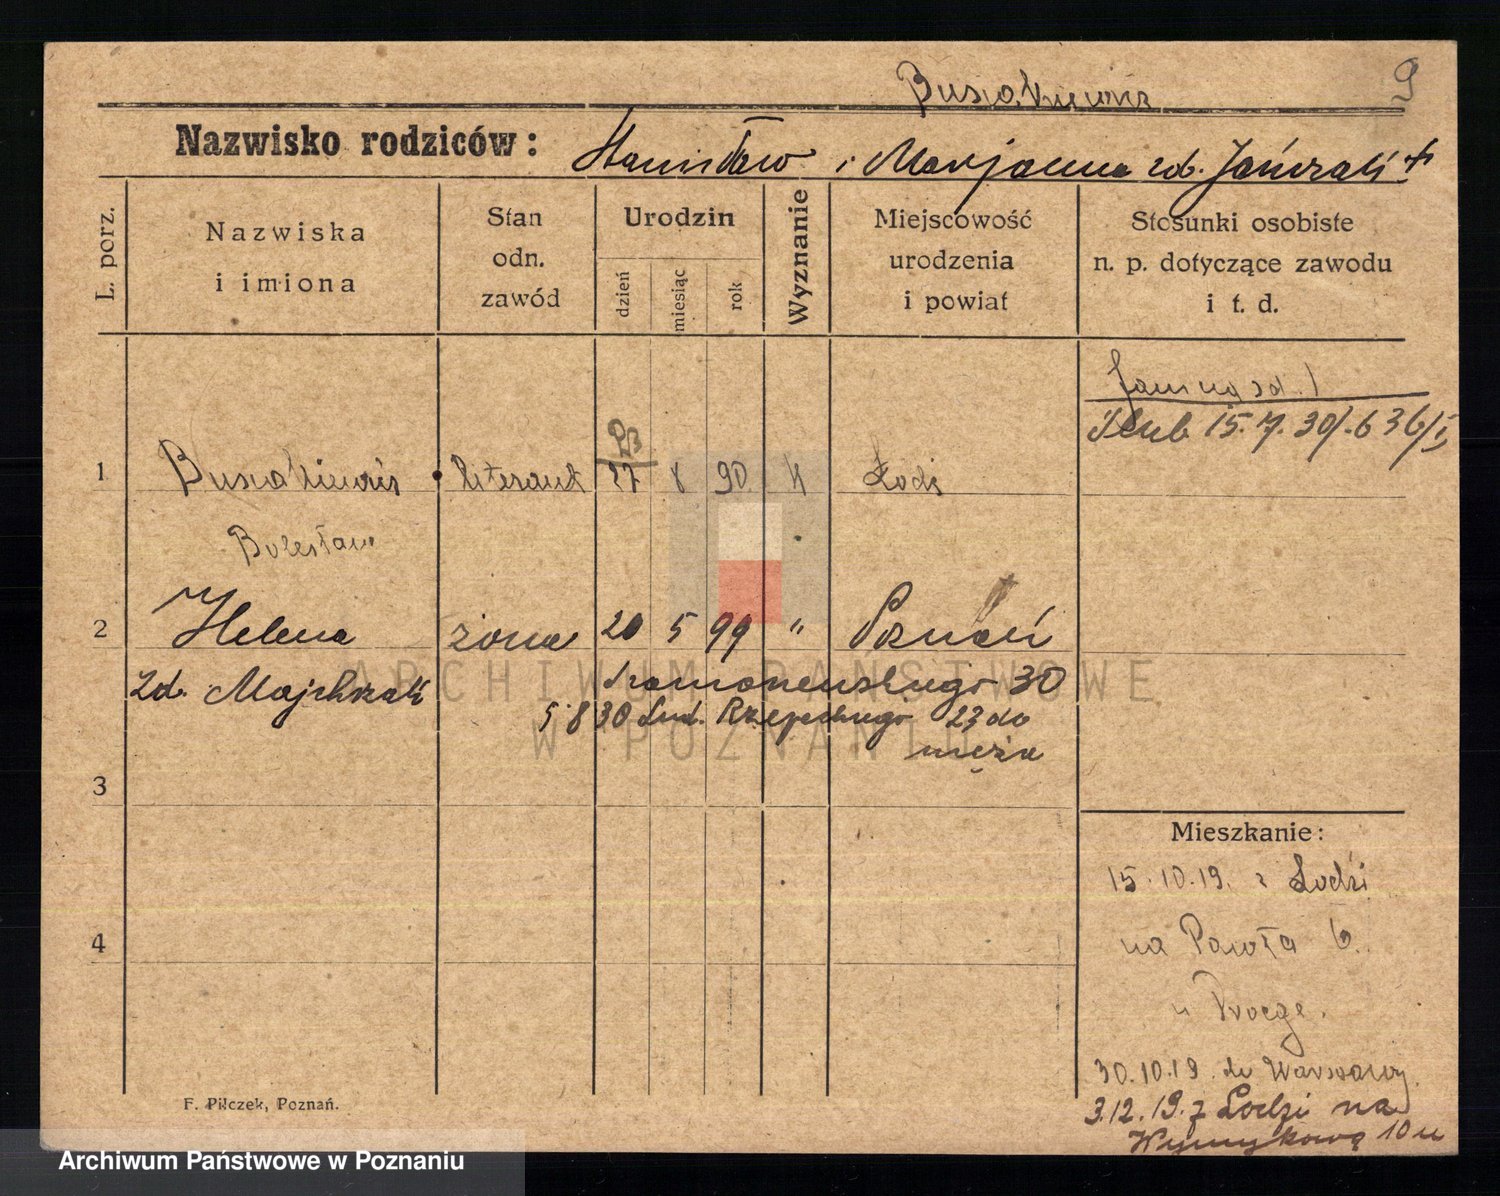 Busiakiewicz 9
Nazwisko rodziców: Stanisław i Marjanna zd. Jańczak
L. porz.
Nazwiska
i imiona
Stan
odn.
zawód
Urodzin
dzień
miesiąc
rok
Wyznanie
Miejscowość
urodzenia
i powiat
Stosunki osobiste
n. p. dotyczące zawodu
i t. d.
Janina zd. 1
ślub 15. 7. 30/. 636/I
1 Busiakiewicz literant 27 8 90 k Łodź
Bolesław
2 Helena żona 20 5 99 " Poznań
zd. Majchrzak 30
5 8 30 Lud. Rzepeckiego 23 do
męża
3
Mieszkanie:
15.10.19. z Łodzi
na Pawła 6.
4
u
30.10.19. do Warszawy.
3.12.19. z Łodzi na
10
F. Pilczek, Poznań.
ARCHIWUM PAŃSTWOWE
W POZNANIU
Archiwum Państwowe w Poznaniu